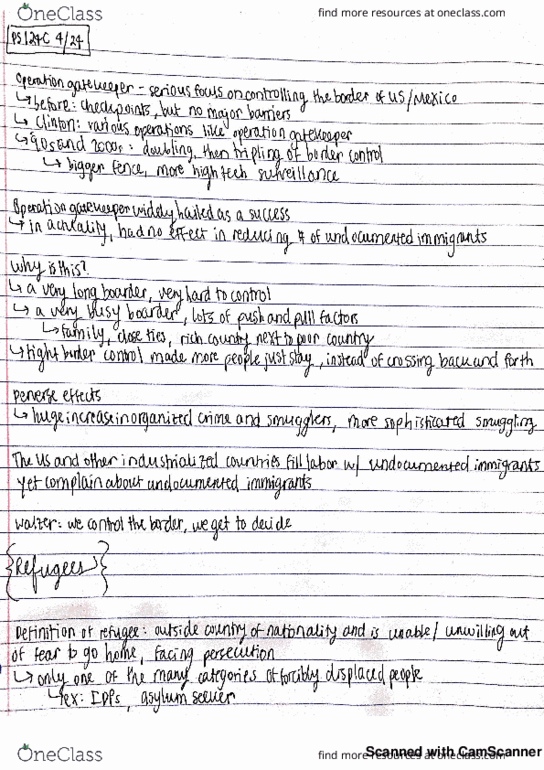 OneClass
find more resources at oneclass.com
PS124C 4/24
Operation gatekeeper - serious focus on controlling the border of US/Mexico
↳ before: checkpoints, but no major barriers
↳ Clinton: various operations like operation gatekeeper
↳ 90s and 2000s: doubling, then tripling of border control
↳ bigger fence, more high tech surveillance
Operation gatekeeper widely hailed as a success
↳ in actuality, had no effect in reducing # of undocumented immigrants
Why is this?
↳ a very long boarder, very hard to control
↳ a very busy boarder, lots of push and pull factors
↳ family, close ties, rich country next to poor country
↳ tight border control made more people just stay, instead of crossing back and forth
perverse effects
↳ huge increase in organized crime and smugglers, more sophisticated smuggling
The US and other industrialized countries fill labor w/ undocumented immigrants
yet complain about undocumented immigrants
Walzer: we control the border, we get to decide
{Refugees}
Definition of refugee: outside country of nationality and is unable/unwilling out
of fear to go home, facing persecution
↳ only one of the many categories of forcibly displaced people
↳ ex: IDPs, asylum seeker
OneClass
find more resources at oneclass.com
Scanned with CamScanner